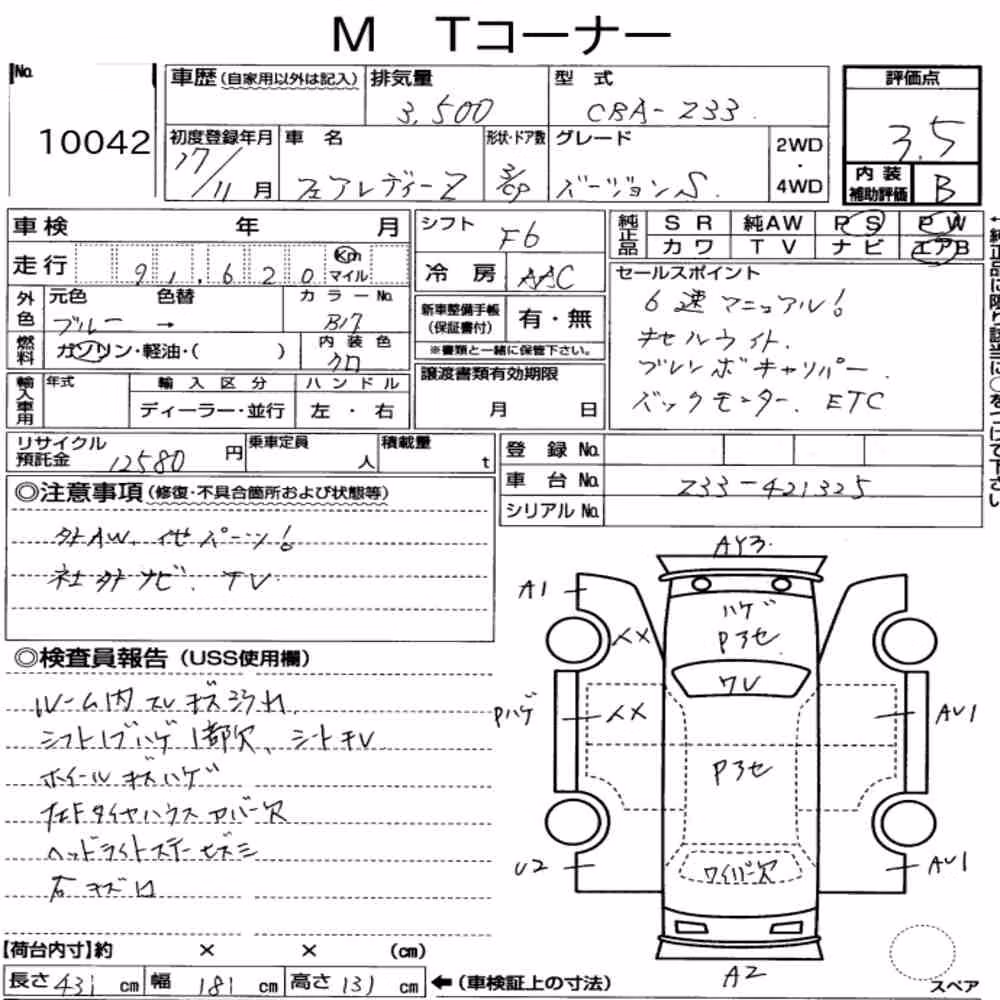 M Tコーナー
No.
10042
車歴 (自家用以外は記入)
排気量
3,500
型式
CBA-Z33
評価点
3.5
初度登録年月
17/11月
車名
フェアレディーZ
形状・ドア数
3/CP
グレード
バージョンS.
2WD
・
4WD
内装
補助評価
B
車検 年 月
走行 91,620 Km マイル
シフト
F6
冷房 AAC
純正品
SR 純AW PS PW
カワ TV ナビ エアB
外色
元色 色替
ブルー →
カラーNo.
B17
燃料
ガソリン・軽油・( )
内装色
クロ
新車整備手帳
(保証書付)
有・無
※書類と一緒に保管下さい。
セールスポイント
6速マニュアル!
キセルライト.
ブレンボキャリパー.
バックモニター. ETC
←純正品に限り該当に○をつけて下さい
輸入車用
年式
輸入区分
ディーラー・並行
ハンドル
左・右
譲渡書類有効期限
月 日
リサイクル
預託金
12580円
乗車定員
人
積載量
t
登録No.
車台No.
Z33-421325
シリアルNo.
◎注意事項(修復・不具合箇所および状態等)
外AW. 他パーツ!
社外ナビ. TV
◎検査員報告(USS使用欄)
ルーム内スレキズヨゴレ
シフトノブハゲ1部欠、シートキレ
ホイールキズハゲ
左Fタイヤハウスカバー欠
ヘッドライトステー
右キズ
AY3.
A1
ハゲ
P3セ
××
ワレ
Pハゲ
××
AU1
P3セ
U2
ワイパー欠
AU1
A2
スペア
【荷台内寸】約 × × (cm)
長さ431cm 幅181cm 高さ131cm ←(車検証上の寸法)